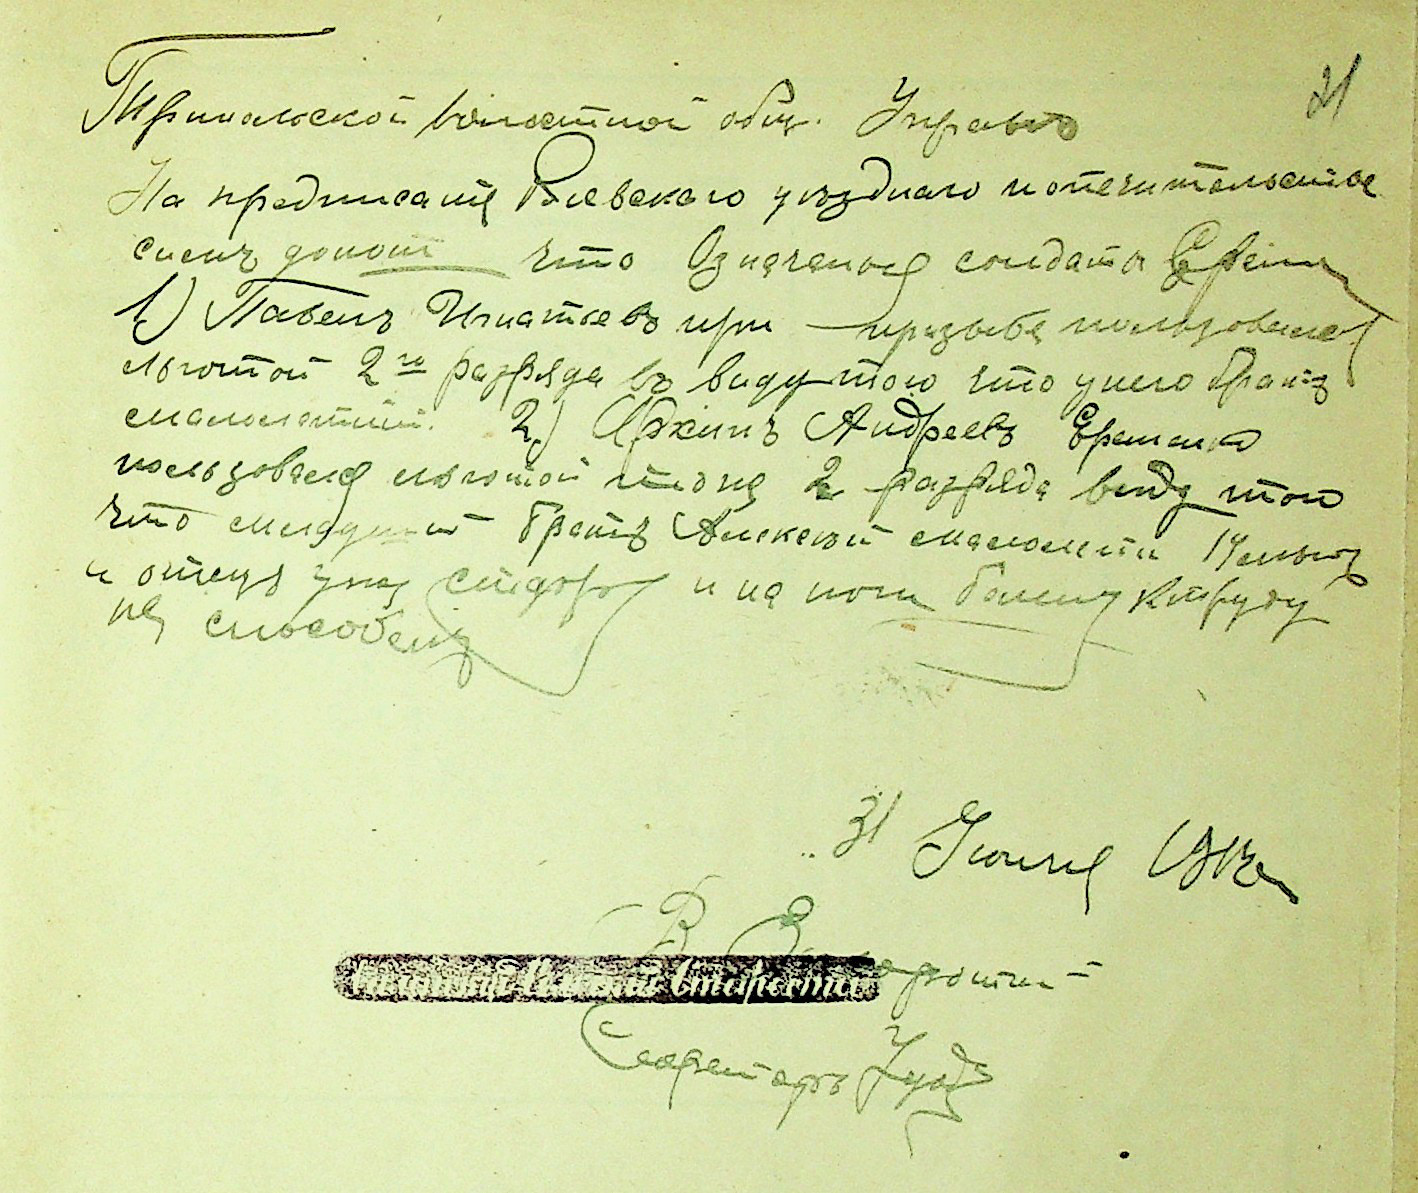 21
Трипольской волостной общ. Управе
На предписания Киевского уезднаго попечительства
сим доношу что Означеные солдаты
1) Павелъ Игнатьевъ при призыве пользовался
льготой 2го разряда въ виду того что у него братъ
малолетний. 2) Андреевъ Еременко
пользовался льготой тоже 2 разряда ввиду того
что младший братъ Алексей малолетний
и отецъ и на ноги болен к труду
не способенъ
31
Сельский Староста
Секретарь